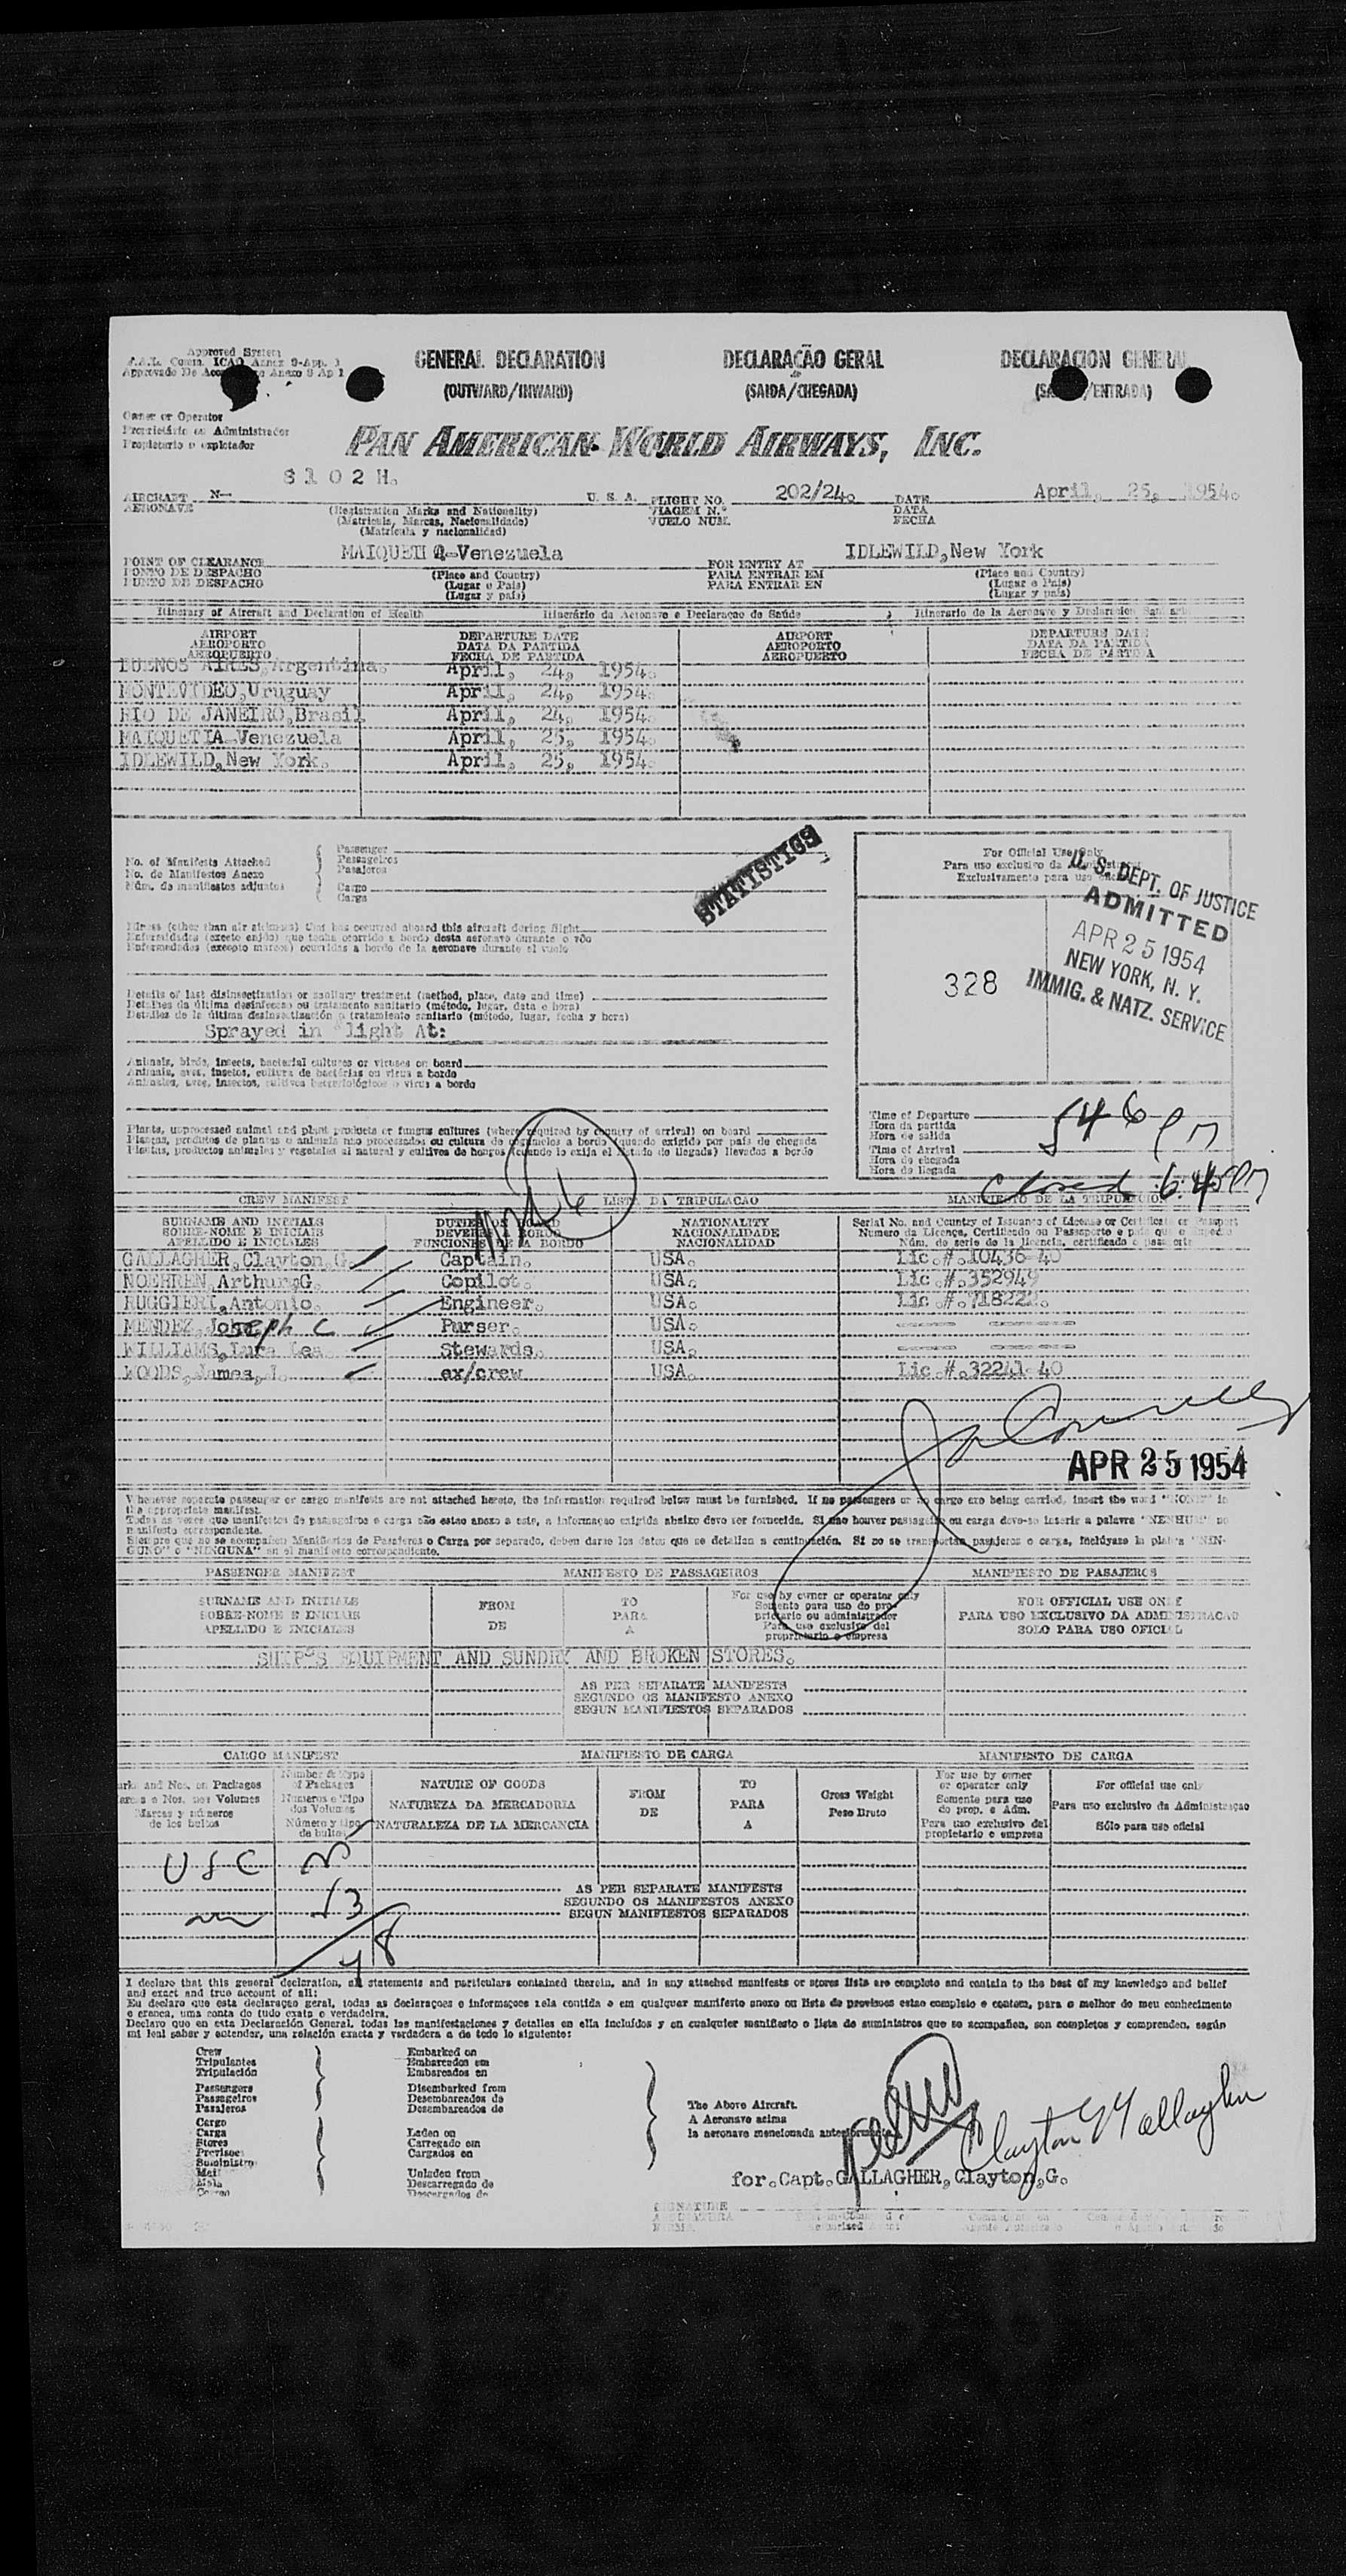 Approved System
I.A.L. Comm. ICAO Annex 9-App. 1
Approvado De Acor to Anexo 9 Ap 1
GENERAL DECLARATION
(OUTWARD/INWARD)
DECLARAÇÃO GERAL
(SAIDA/CHEGADA)
DECLARACION GENERAL
(SA /ENTRADA)
Owner or Operator
Proprietário ou Administrador
Propietario o explotador
PAN AMERICAN WORLD AIRWAYS, INC.
8102H.
AIRCRAFT N— U. S. A. FLIGHT NO. 202/24. DATE April, 25, 1954.
AERONAVE (Registration Marks and Nationality) VIAGEM N.º DATA
(Matricula, Marcas, Nacionalidade) VUELO NUM. FECHA
(Matricula y nacionalidad)
MAIQUETIA-Venezuela IDLEWILD,New York
POINT OF CLEARANCE FOR ENTRY AT
PONTO DE DESPACHO (Place and Country) PARA ENTRAR EM (Place and Country)
PUNTO DE DESPACHO (Lugar e País) PARA ENTRAR EN (Lugar e País)
(Lugar y país) (Lugar y país)
Itinerary of Aircraft and Declaration of Health Itinerário da Aeronave e Declaração de Saúde Itinerario de la Aeronave y Declaracion Sanitaria
AIRPORT DEPARTURE DATE AIRPORT DEPARTURE DATE
AEROPORTO DATA DA PARTIDA AEROPORTO DATA DA PARTIDA
AEROPUERTO FECHA DE PARTIDA AEROPUERTO FECHA DE PARTIDA
BUENOS AIRES,Argentina. April, 24, 1954.
MONTEVIDEO,Uruguay April, 24, 1954.
RIO DE JANEIRO,Brasil April, 24, 1954.
MAIQUETIA-Venezuela April, 25, 1954.
IDLEWILD,New York. April, 25, 1954.
STATISTICS
No. of Manifests Attached
No. de Manifestos Anexo
Núm. de manifiestos adjuntos
Passenger
Passageiros
Pasajeros
Cargo
Carga
For Official Use Only
Para uso exclusivo da
Exclusivamente para uso
U. S. DEPT. OF JUSTICE
ADMITTED
APR 25 1954
NEW YORK, N. Y.
IMMIG. & NATZ. SERVICE
328
Illness (other than air sickness) that has occurred aboard this aircraft during flight
Enfermidades (exceto enjôo) que tenha ocorrido a bordo desta aeronave durante o vôo
Enfermedades (excepto mareos) ocurridas a bordo de la aeronave durante el vuelo
Details of last disinsectization or sanitary treatment (method, place, date and time)
Detalhes da última desinfecção ou tratamento sanitário (método, lugar, data e hora)
Detalles de la última desinsectización o tratamiento sanitario (método, lugar, fecha y hora)
Sprayed in light At:
Animals, birds, insects, bacterial cultures or viruses on board
Animais, aves, insetos, cultura de bactérias ou virus a bordo
Animales, aves, insectos, cultivos bacteriológicos o virus a bordo
Plants, unprocessed animal and plant products or fungus cultures (where required by country of arrival) on board
Plantas, produtos de plantas o animals não processados ou cultura de cogumelos a bordo (quando exigido por país de chegada
Plantas, productos animales y vegetales al natural y cultivos de hongos (cuando lo exija el Estado de llegada) llevados a bordo
Time of Departure
Hora da partida
Hora de salida
Time of Arrival
Hora de chegada
Hora de llegada
546 pm
Closed 6:45 PM
CREW MANIFEST LISTA DA TRIPULACAO MANIFIESTO DE LA TRIPULACION
SURNAME AND INITIALS DUTIES ON BOARD NATIONALITY Serial No. and Country of Issuance of License or Certificate or Passport
SOBRE-NOME E INICIAIS DEVERES A BORDO NACIONALIDADE Numero da Licença, Certificado ou Passaporte e país que o expedio
APELLIDO E INICIALES FUNCIONES DE A BORDO NACIONALIDAD Núm. de serie de la licencia, certificado o pasaporte
GALLAGHER,Clayton,G. Captain. USA. Lic.#.10436-40
NOEHREN,Arthur,G. Copilot. USA. Lic.#.352949
RUGGIERI,Antonio. Engineer. USA. Lic.#.718222.
MENDEZ,Joseph C Purser. USA.
WILLIAMS,Lura Lea Stewards. USA.
WOODS,James,J. ex/crew USA. Lic.#.32241-40
APR 25 1954
Whenever separate passenger or cargo manifests are not attached hereto, the information required below must be furnished. If no passengers or no cargo are being carried, insert the word "NONE" in
the appropriate manifest.
Todas as vezes que manifestos de passageiros e carga não estão anexo a este, a informaçao exigida abaixo deve ser fornecida. Si não houver passageiro ou carga deve-se inserir a palavra "NENHUM" no
manifesto correspondente.
Siempre que no se acompañen Manifiestos de Pasajeros o Carga por separado, deben darse los datos que se detallan a continuación. Si no se transportan pasajeros o carga, inclúyase la plabra "NIN-
GUNO" o "NINGUNA" en el manifiesto correspondiente.
PASSENGER MANIFEST MANIFESTO DE PASSAGEIROS MANIFIESTO DE PASAJEROS
SURNAME AND INITIALS FROM TO For use by owner or operator only FOR OFFICIAL USE ONLY
SOBRE-NOME E INICIAIS DE PARA Somente para uso do pro- PARA USO EXCLUSIVO DA ADMINISTRACAO
APELLIDO E INICIALES A prietario ou administrador SOLO PARA USO OFICIAL
Para uso exclusivo del
proprietario o empresa
SHIP'S EQUIPMENT AND SUNDRY AND BROKEN STORES.
AS PER SEPARATE MANIFESTS
SEGUNDO OS MANIFESTO ANEXO
SEGUN MANIFIESTOS SEPARADOS
CARGO MANIFEST MANIFIESTO DE CARGA MANIFESTO DE CARGA
arks and Nos. on Packages Number & Type of Packages NATURE OF GOODS FROM TO Gross Weight For use by owner or operator only For official use only
arcas e Nos. nos Volumes Numeros e Tipo dos Volumes NATUREZA DA MERCADORIA DE PARA Peso Bruto Somente para uso do prop. e Adm. Para uso exclusivo da Administraçao
Marcas y números de los bultos Número y tipo de bultos NATURALEZA DE LA MERCANCIA A Para uso exclusivo del propietario o empresa Sólo para uso oficial
USC
13
48
AS PER SEPARATE MANIFESTS
SEGUNDO OS MANIFESTOS ANEXO
SEGUN MANIFIESTOS SEPARADOS
I declare that this general declaration, all statements and particulars contained therein, and in any attached manifests or stores lists are complete and contain to the best of my knowledge and belief
and exact and true account of all:
Eu declaro que esta declaraçao geral, todas as declaraçoes e informaçoes nela contida e em qualquer manifesto anexo ou lista de provisoes estao completo e contem, para o melhor do meu conhecimento
e crenca, uma conta de tudo exata e verdadeira.
Declaro que en esta Declaración General, todas las manifestaciones y detalles en ella incluídos y en cualquier manifiesto o lista de suministros que se acompañen, son completos y comprenden, según
mi leal saber y entender, una relación exacta y verdadera de todo lo siguiente:
Crew
Tripulantes
Tripulación
Passengers
Passageiros
Pasajeros
Cargo
Carga
Stores
Provisoes
Suministro
Mail
Mala
Correo
Embarked on
Embarcados em
Embarcados en
Disembarked from
Desembarcados de
Desembarcados de
Laden on
Carregado em
Cargados en
Unladen from
Descarregado de
Descargados de
The Above Aircraft.
A Aeronave acima
la aeronave mencionada anteriormente
Clayton G Gallagher
for.Capt.GALLAGHER,Clayton,G.
SIGNATURE
ASSINATURA
FIRMA